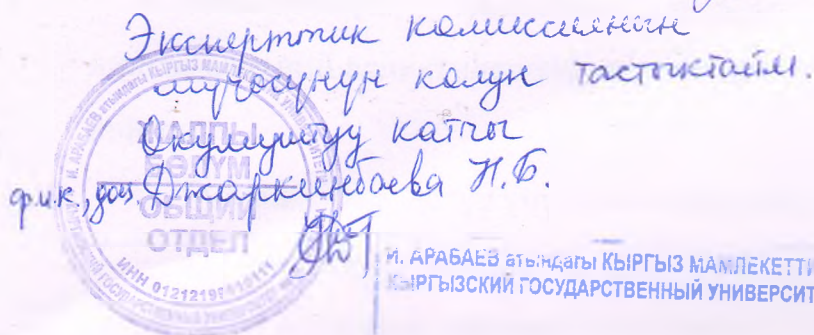 Эксперттик комиссиянын
мүчөсүнүн колун тастыктайм.
Окумуштуу катчы
ф.и.к., доц. Джаркинбаева Н.Б.
ЖАЛПЫ
БӨЛҮМ
ОБЩИЙ
ОТДЕЛ
И. АРАБАЕВ атындагы КЫРГЫЗ МАМЛЕКЕТТИ
КЫРГЫЗСКИЙ ГОСУДАРСТВЕННЫЙ УНИВЕРСИТ